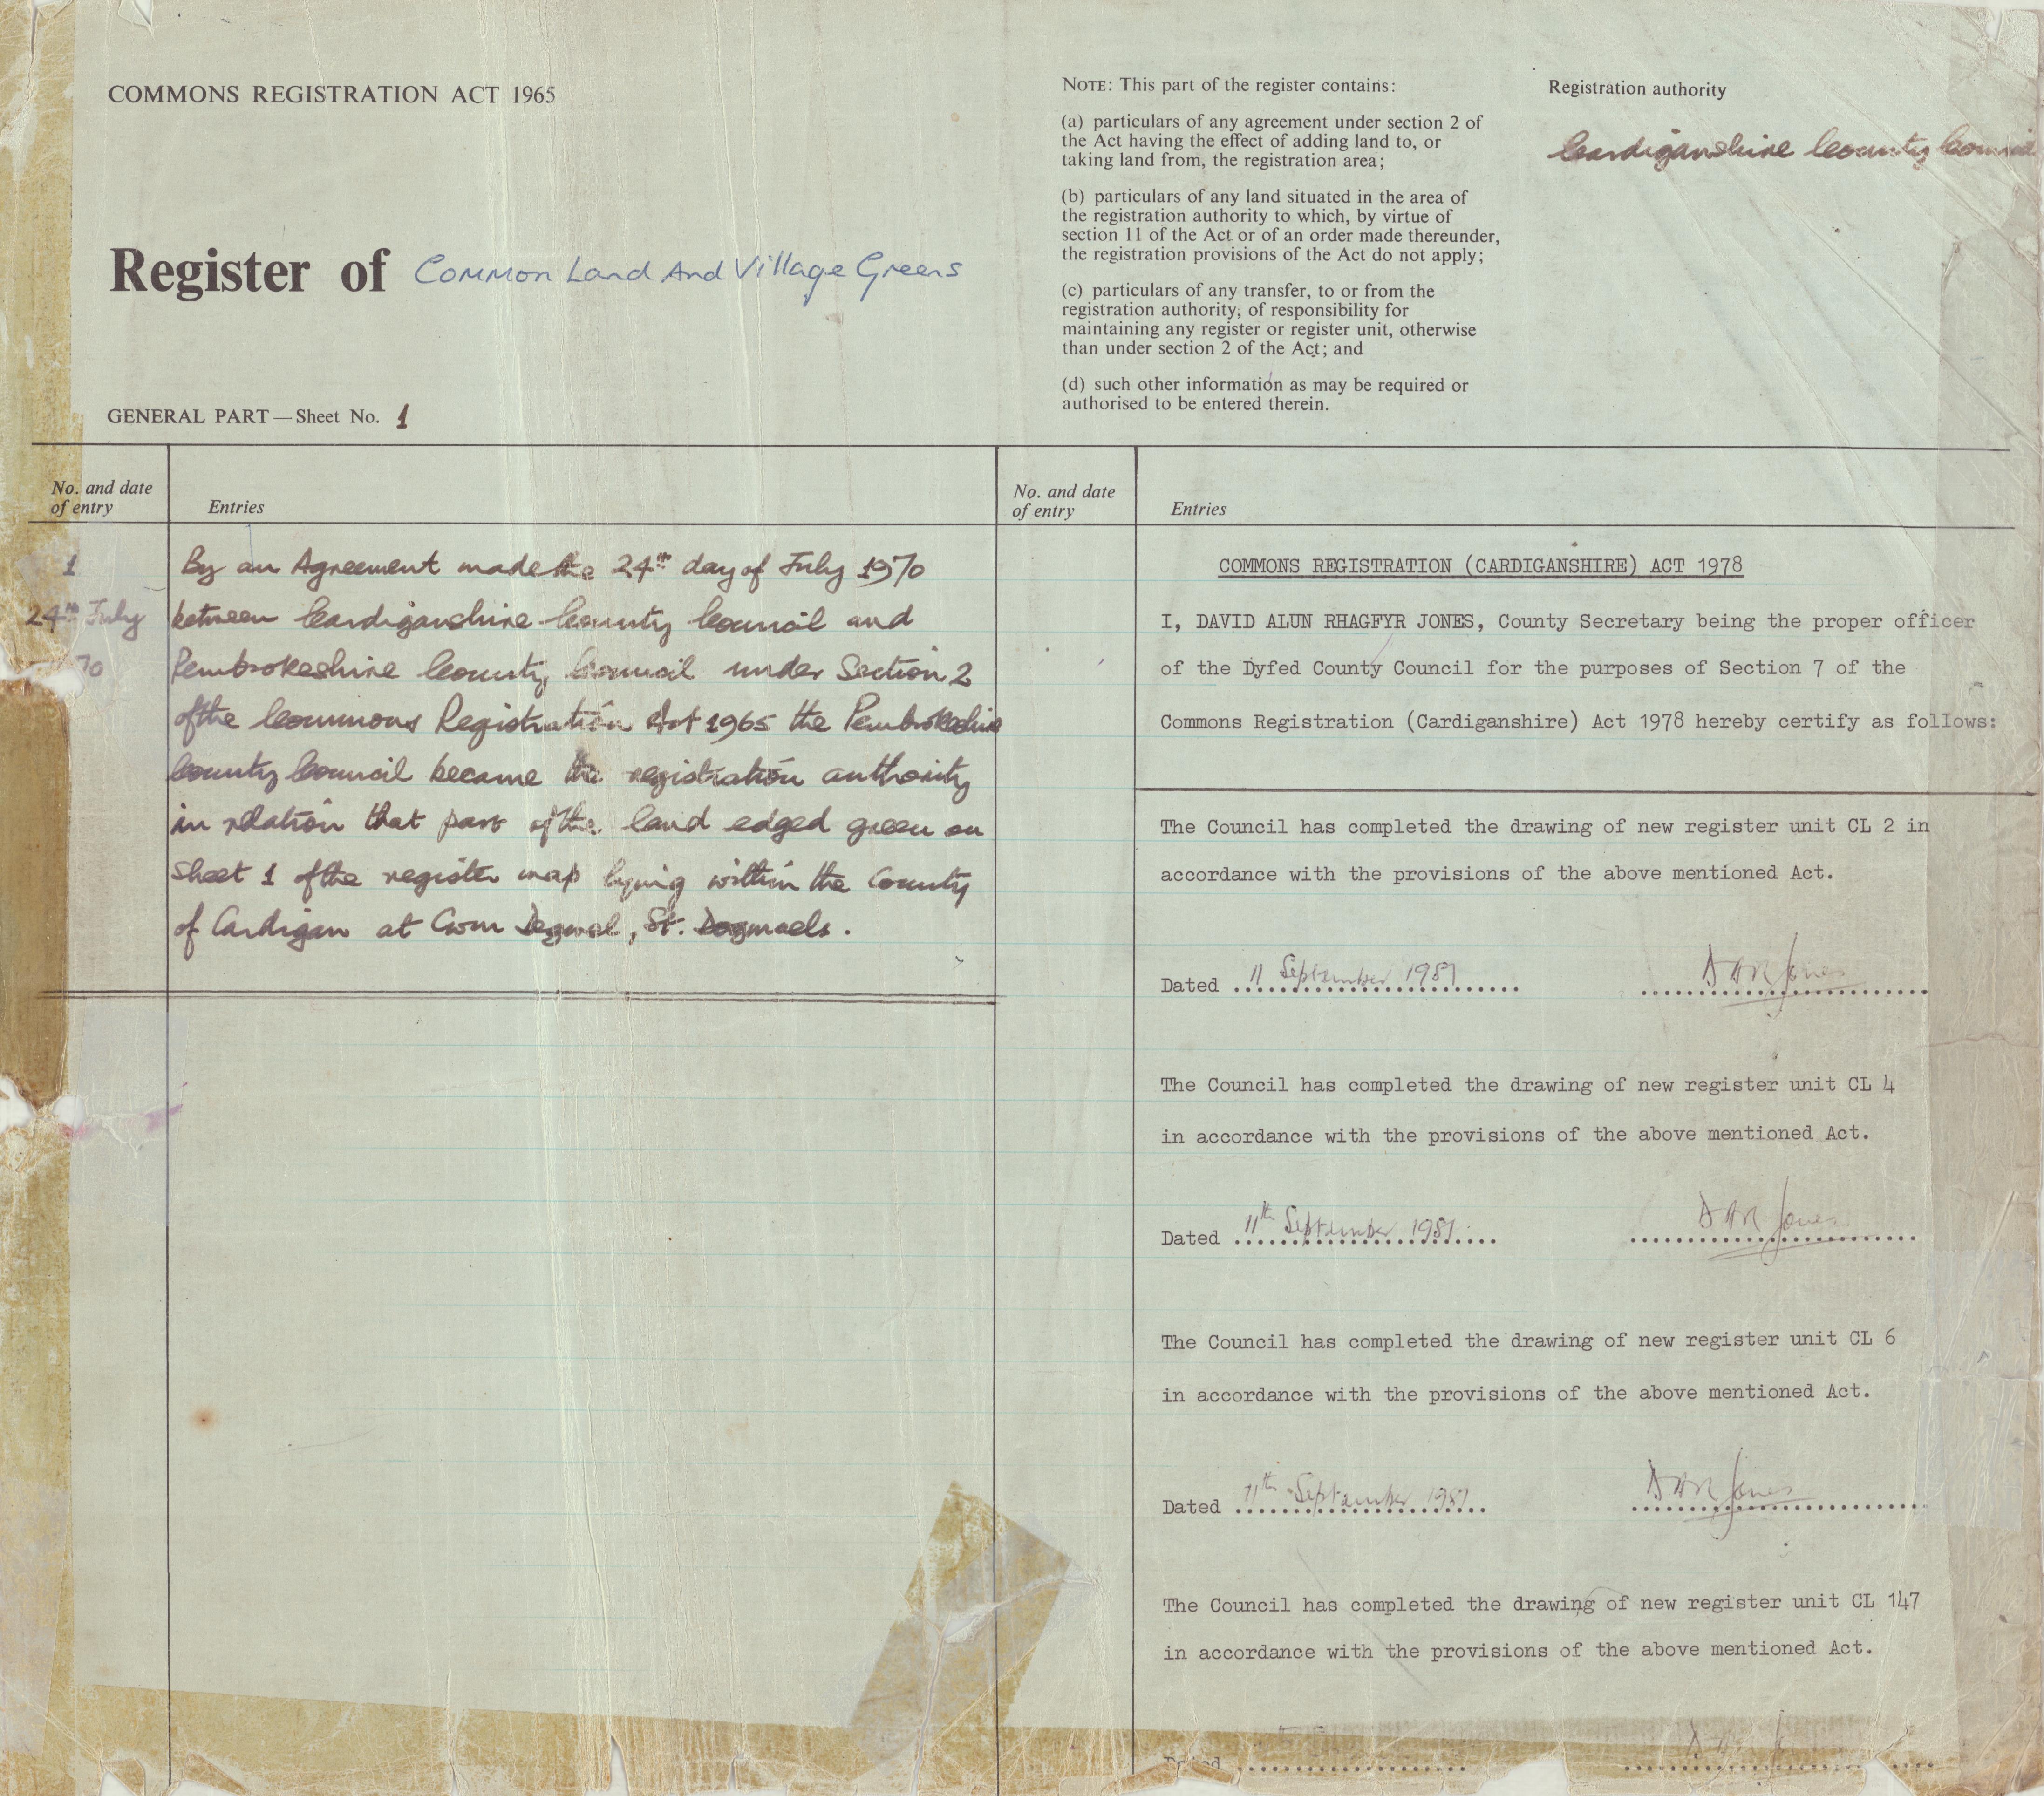 COMMONS REGISTRATION ACT 1965
Register of Common Land And Village Greens
GENERAL PART — Sheet No. 1
NOTE: This part of the register contains:
(a) particulars of any agreement under section 2 of
the Act having the effect of adding land to, or
taking land from, the registration area;
(b) particulars of any land situated in the area of
the registration authority to which, by virtue of
section 11 of the Act or of an order made thereunder,
the registration provisions of the Act do not apply;
(c) particulars of any transfer, to or from the
registration authority, of responsibility for
maintaining any register or register unit, otherwise
than under section 2 of the Act; and
(d) such other information as may be required or
authorised to be entered therein.
Registration authority
Cardiganshire County Council
No. and date
of entry
Entries
1
24th July
70
By an Agreement made the 24th day of July 1970
between Cardiganshire County Council and
Pembrokeshire County Council under Section 2
of the Commons Registration Act 1965 the Pembrokeshire
County Council became the registration authority
in relation that part of the land edged green on
sheet 1 of the register map lying within the County
of Cardigan at Cwm Degwel, St. Dogmaels.
No. and date
of entry
Entries
COMMONS REGISTRATION (CARDIGANSHIRE) ACT 1978
I, DAVID ALUN RHAGFYR JONES, County Secretary being the proper officer
of the Dyfed County Council for the purposes of Section 7 of the
Commons Registration (Cardiganshire) Act 1978 hereby certify as follows:
The Council has completed the drawing of new register unit CL 2 in
accordance with the provisions of the above mentioned Act.
Dated 11 September 1981 D A R Jones
The Council has completed the drawing of new register unit CL 4
in accordance with the provisions of the above mentioned Act.
Dated 11th September 1981 D A R Jones
The Council has completed the drawing of new register unit CL 6
in accordance with the provisions of the above mentioned Act.
Dated 11th September 1981 D A R Jones
The Council has completed the drawing of new register unit CL 147
in accordance with the provisions of the above mentioned Act.
Dated